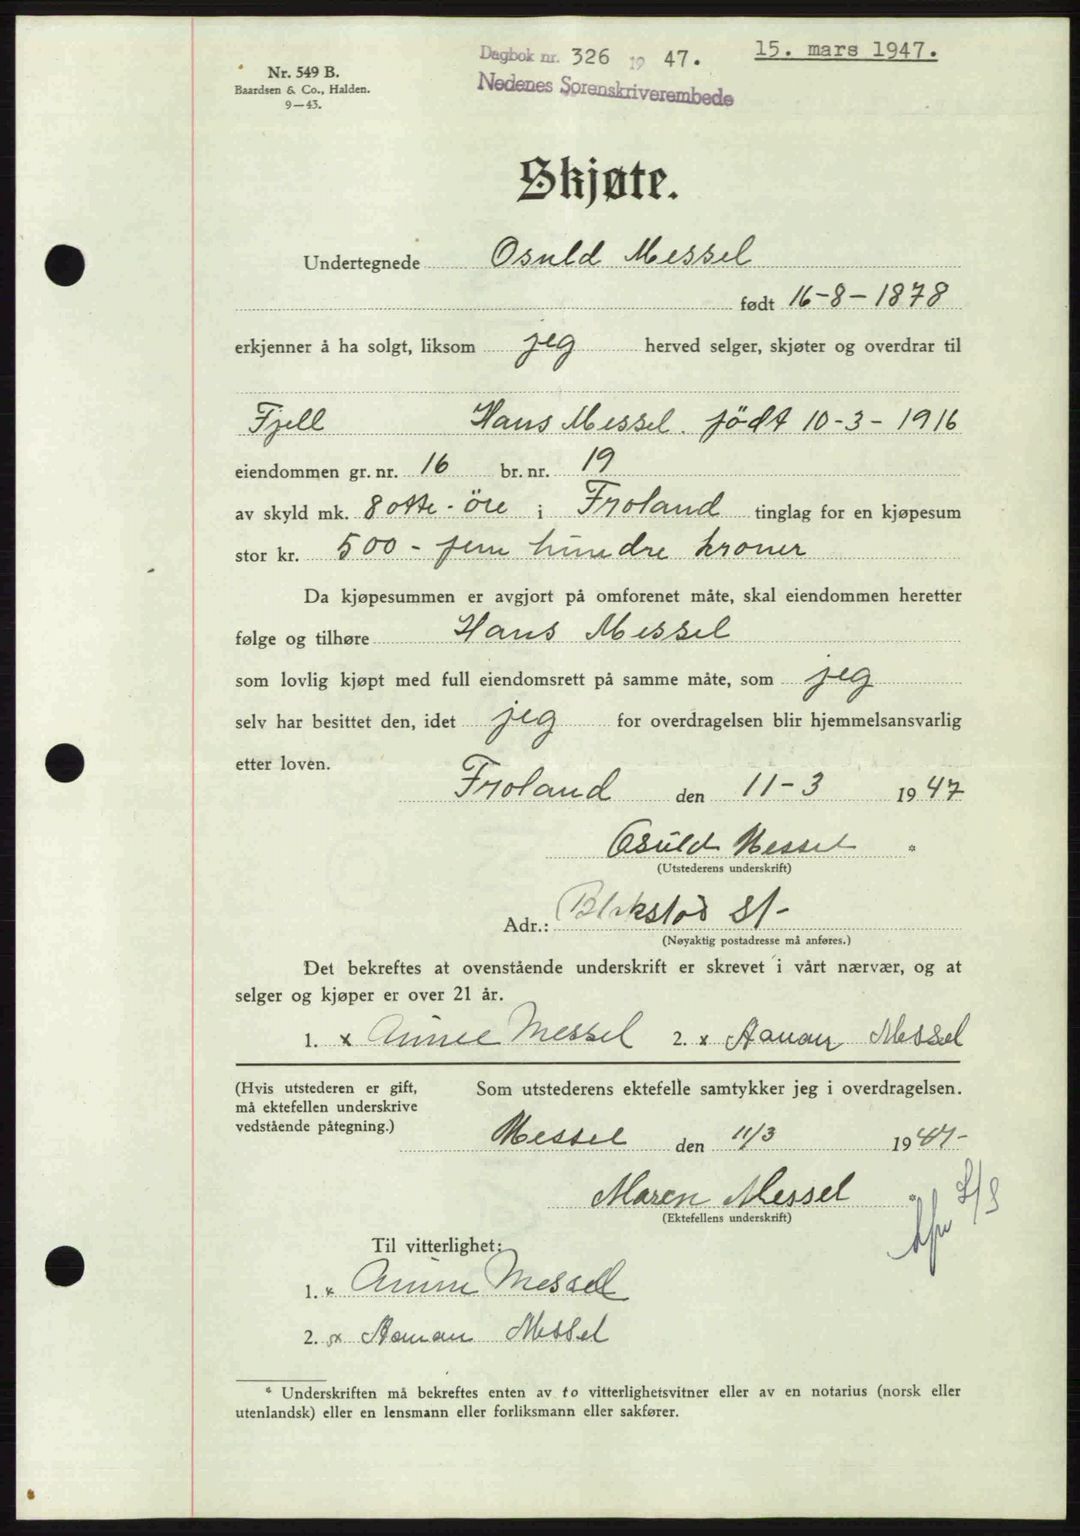 Nr. 549 B.
Baardsen & Co., Halden.
9—43.
Dagbok nr. 326 19 47.
Nedenes Sorenskriverembede
15. mars 1947.
Skjøte.
Undertegnede Osuld Messel
født 16-8-1878
erkjenner å ha solgt, liksom jeg herved selger, skjøter og overdrar til
Fjell Hans Messel. födt 10-3-1916
eiendommen gr. nr. 16 br. nr. 19
av skyld mk. 8 otte - öre i Froland tinglag for en kjøpesum
stor kr. 500 - fem hundre kroner
Da kjøpesummen er avgjort på omforenet måte, skal eiendommen heretter
følge og tilhøre Hans Messel
som lovlig kjøpt med full eiendomsrett på samme måte, som jeg
selv har besittet den, idet jeg for overdragelsen blir hjemmelsansvarlig
etter loven.
Froland den 11-3 1947
Osuld Messel *
(Utstederens underskrift)
Adr.: Blakstad St-
(Nøyaktig postadresse må anføres.)
Det bekreftes at ovenstående underskrift er skrevet i vårt nærvær, og at
selger og kjøper er over 21 år.
1. x Messel 2. x Messel
(Hvis utstederen er gift,
må ektefellen underskrive
vedstående påtegning.)
Som utstederens ektefelle samtykker jeg i overdragelsen.
Messel den 11/3 1947-
Maren Messel *
(Ektefellens underskrift)
Til vitterlighet:
1. x Messel
2. x Messel
* Underskriften må bekreftes enten av to vitterlighetsvitner eller av en notarius (norsk eller
utenlandsk) eller en lensmann eller forliksmann eller sakfører.